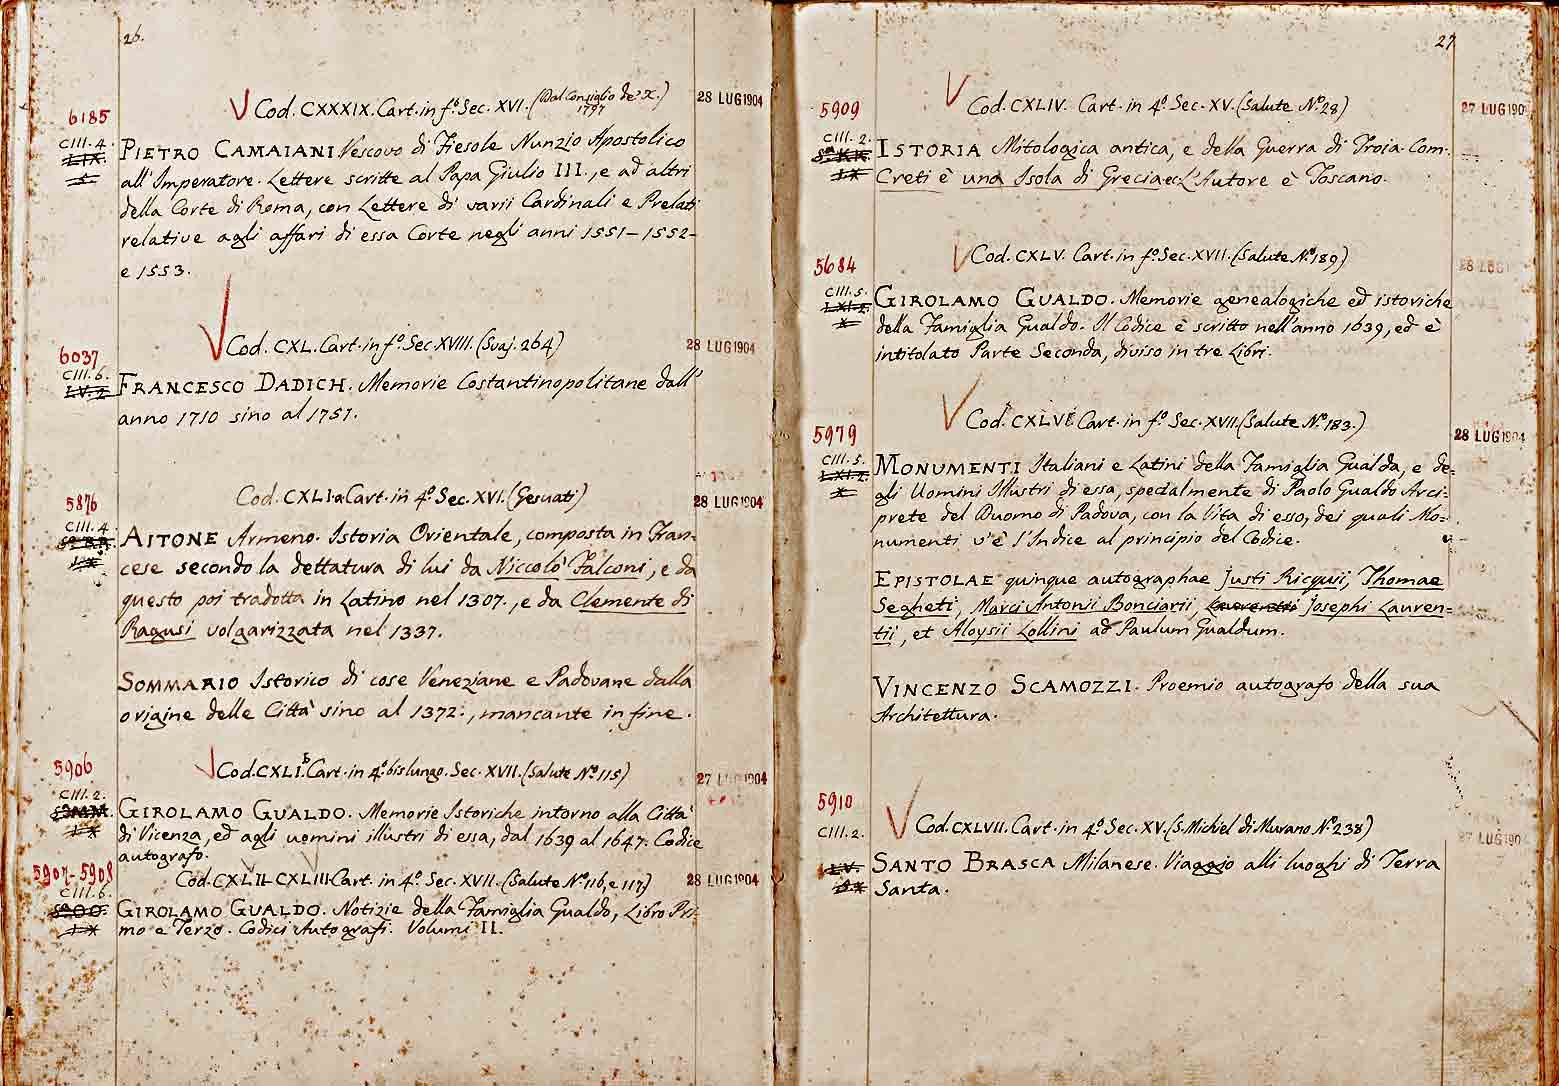 26.
6185
Cod. CXXXIX. Cart. in fº. Sec. XVI. (Dal Consiglio de' X. 1797)
28 LUG 1904
CIII. 4.
LIX.
5
PIETRO CAMAIANI Vescovo di Fiesole Nunzio Apostolico
all' Imperatore. Lettere scritte al Papa Giulio III., e ad altri
della Corte di Roma, con Lettere di varii Cardinali e Prelati
relative agli affari di essa Corte negli anni 1551 – 1552 –
e 1553.
6037
Cod. CXL. Cart. in fº. Sec. XVIII. (Svaj. 264)
28 LUG 1904
CIII. 6.
LV. 2.
FRANCESCO DADICH. Memorie Costantinopolitane dall'
anno 1710 sino al 1751.
5876
Cod. CXLI.a Cart. in 4º. Sec. XVI. (Gesuati)
28 LUG 1904
CIII. 4.
AITONE Armeno. Istoria Orientale, composta in Fran-
cese secondo la dettatura di lui da Niccolò Falconi, e da
questo poi tradotta in Latino nel 1307., e da Clemente di
Ragusi volgarizzata nel 1337.
SOMMARIO Istorico di cose Veneziane e Padovane dalla
origine delle Città sino al 1372., mancante in fine.
5906
Cod. CXLI.b Cart. in 4º. bislungo. Sec. XVII. (Salute Nº. 115)
27 LUG 1904
CIII. 2.
GIROLAMO GUALDO. Memorie Istoriche intorno alla Città
di Vicenza, ed agli uomini illustri di essa, dal 1639 al 1647. Codice
autografo.
5907-5908
Cod. CXLII. CXLIII. Cart. in 4º. Sec. XVII. (Salute Nº. 116, e 117)
28 LUG 1904
CIII. 6.
GIROLAMO GUALDO. Notizie della Famiglia Gualdo, Libro Pri-
mo e Terzo. Codici Autografi. Volumi II.
27
5909
Cod. CXLIV. Cart. in 4º. Sec. XV. (Salute Nº. 28)
27 LUG 190
CIII. 2.
ISTORIA Mitologica antica, e della Guerra di Troia. Com:
Creti è una Isola di Grecia ec. L'Autore è Toscano.
5684
Cod. CXLV. Cart. in fº. Sec. XVII. (Salute Nº. 189)
28 LUG
CIII. 5.
LXI. 2.
X
GIROLAMO GUALDO. Memorie genealogiche ed istoriche
della Famiglia Gualdo. Il Codice è scritto nell'anno 1639, ed è
intitolato Parte Seconda, diviso in tre Libri.
5979
Cod. CXLVI. Cart. in fº. Sec. XVII. (Salute Nº. 183.)
28 LUG 1904
CIII. 5.
LXI. 2.
X
MONUMENTI Italiani e Latini della Famiglia Gualda, e de-
gli Uomini Illustri di essa, specialmente di Paolo Gualdo Arci-
prete del Duomo di Padova, con la Vita di esso, dei quali Mo-
numenti v'è l'Indice al principio del Codice.
EPISTOLAE quinque autographae Justi Ricquii, Thomae
Segheti, Marci Antonii Bonciarii, Laurentii Josephi Lauren-
tii, et Aloysii Lollini ad Paulum Gualdum.
VINCENZO SCAMOZZI. Proemio autografo della sua
Architettura.
5910
Cod. CXLVII. Cart. in 4º. Sec. XV. (S. Michiel di Murano Nº. 238)
27 LUG 190
CIII. 2.
LV.
SANTO BRASCA Milanese. Viaggio alli luoghi di Terra
Santa.